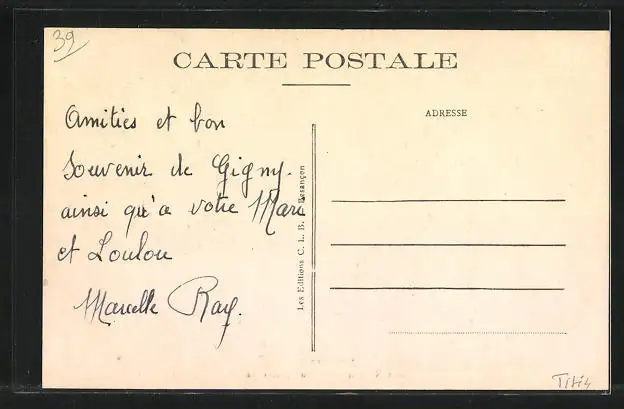 39
CARTE POSTALE
ADRESSE
Amitiés et bon
Souvenir de Gigny.
ainsi qu'a votre Mari
et Loulou
Marcelle Ray.
Les Editions C. L. B. Besançon